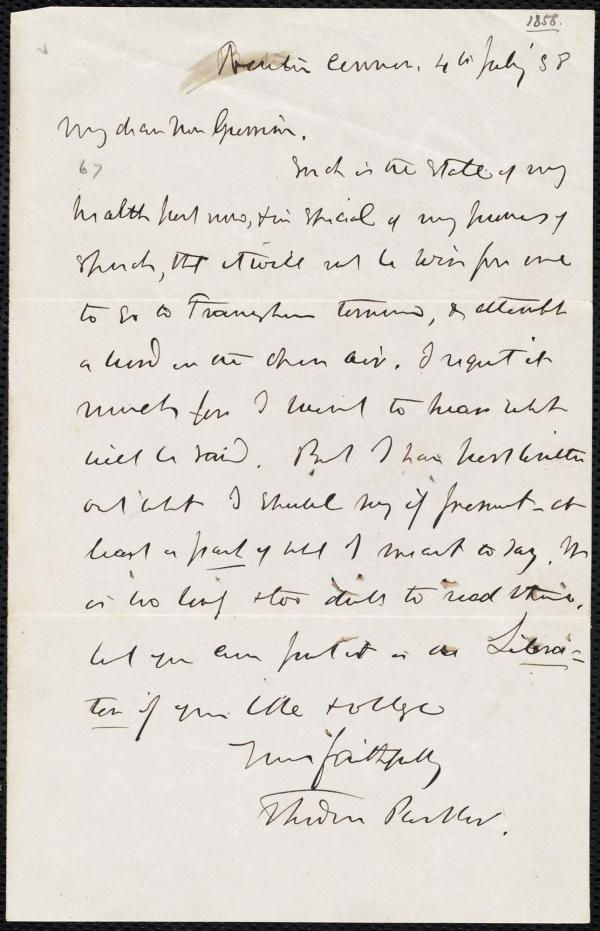 1858.
Newton Corner. 4th July 58
My dear Mr Garrison.
67
Such is the state of my
health just now, & in special of my powers of
speech, tht it will not be wise for me
to go to Framingham tomorrow, & attempt
a word in the open air. I regret it
much for I want to hear what
will be said. But I have just written
out wht I should say if present — at
least a part of wht I meant to say. It
is too long & too dull to read there,
but you can put it in the Libera=
tor if you like & oblige
Yours faithfully
Theodore Parker.